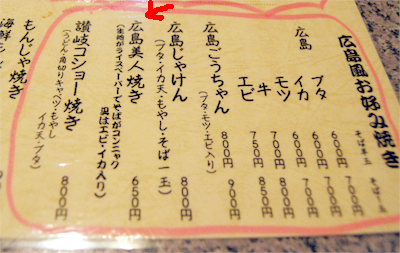 広島風お好み焼き
そば半玉 そば一玉
広島 ブタ 600円 700円
イカ 600円 700円
モツ 600円 700円
キ 700円
エビ 750円 850円
広島ごうちゃん 800円 900円
(ブタ・モツ・エビ入り)
広島じゃけん 800円
(ブタ・イカ天・もやし・そば一玉)
広島美人焼き 650円
(生地がライスペーパーでそばがコンニャク
具はエビ・イカ入り)
讃岐コショー焼き 800円
(うどん・角切りキャベツ・もやし
イカ天・ブタ)
もんじゃ焼き
海鮮もん